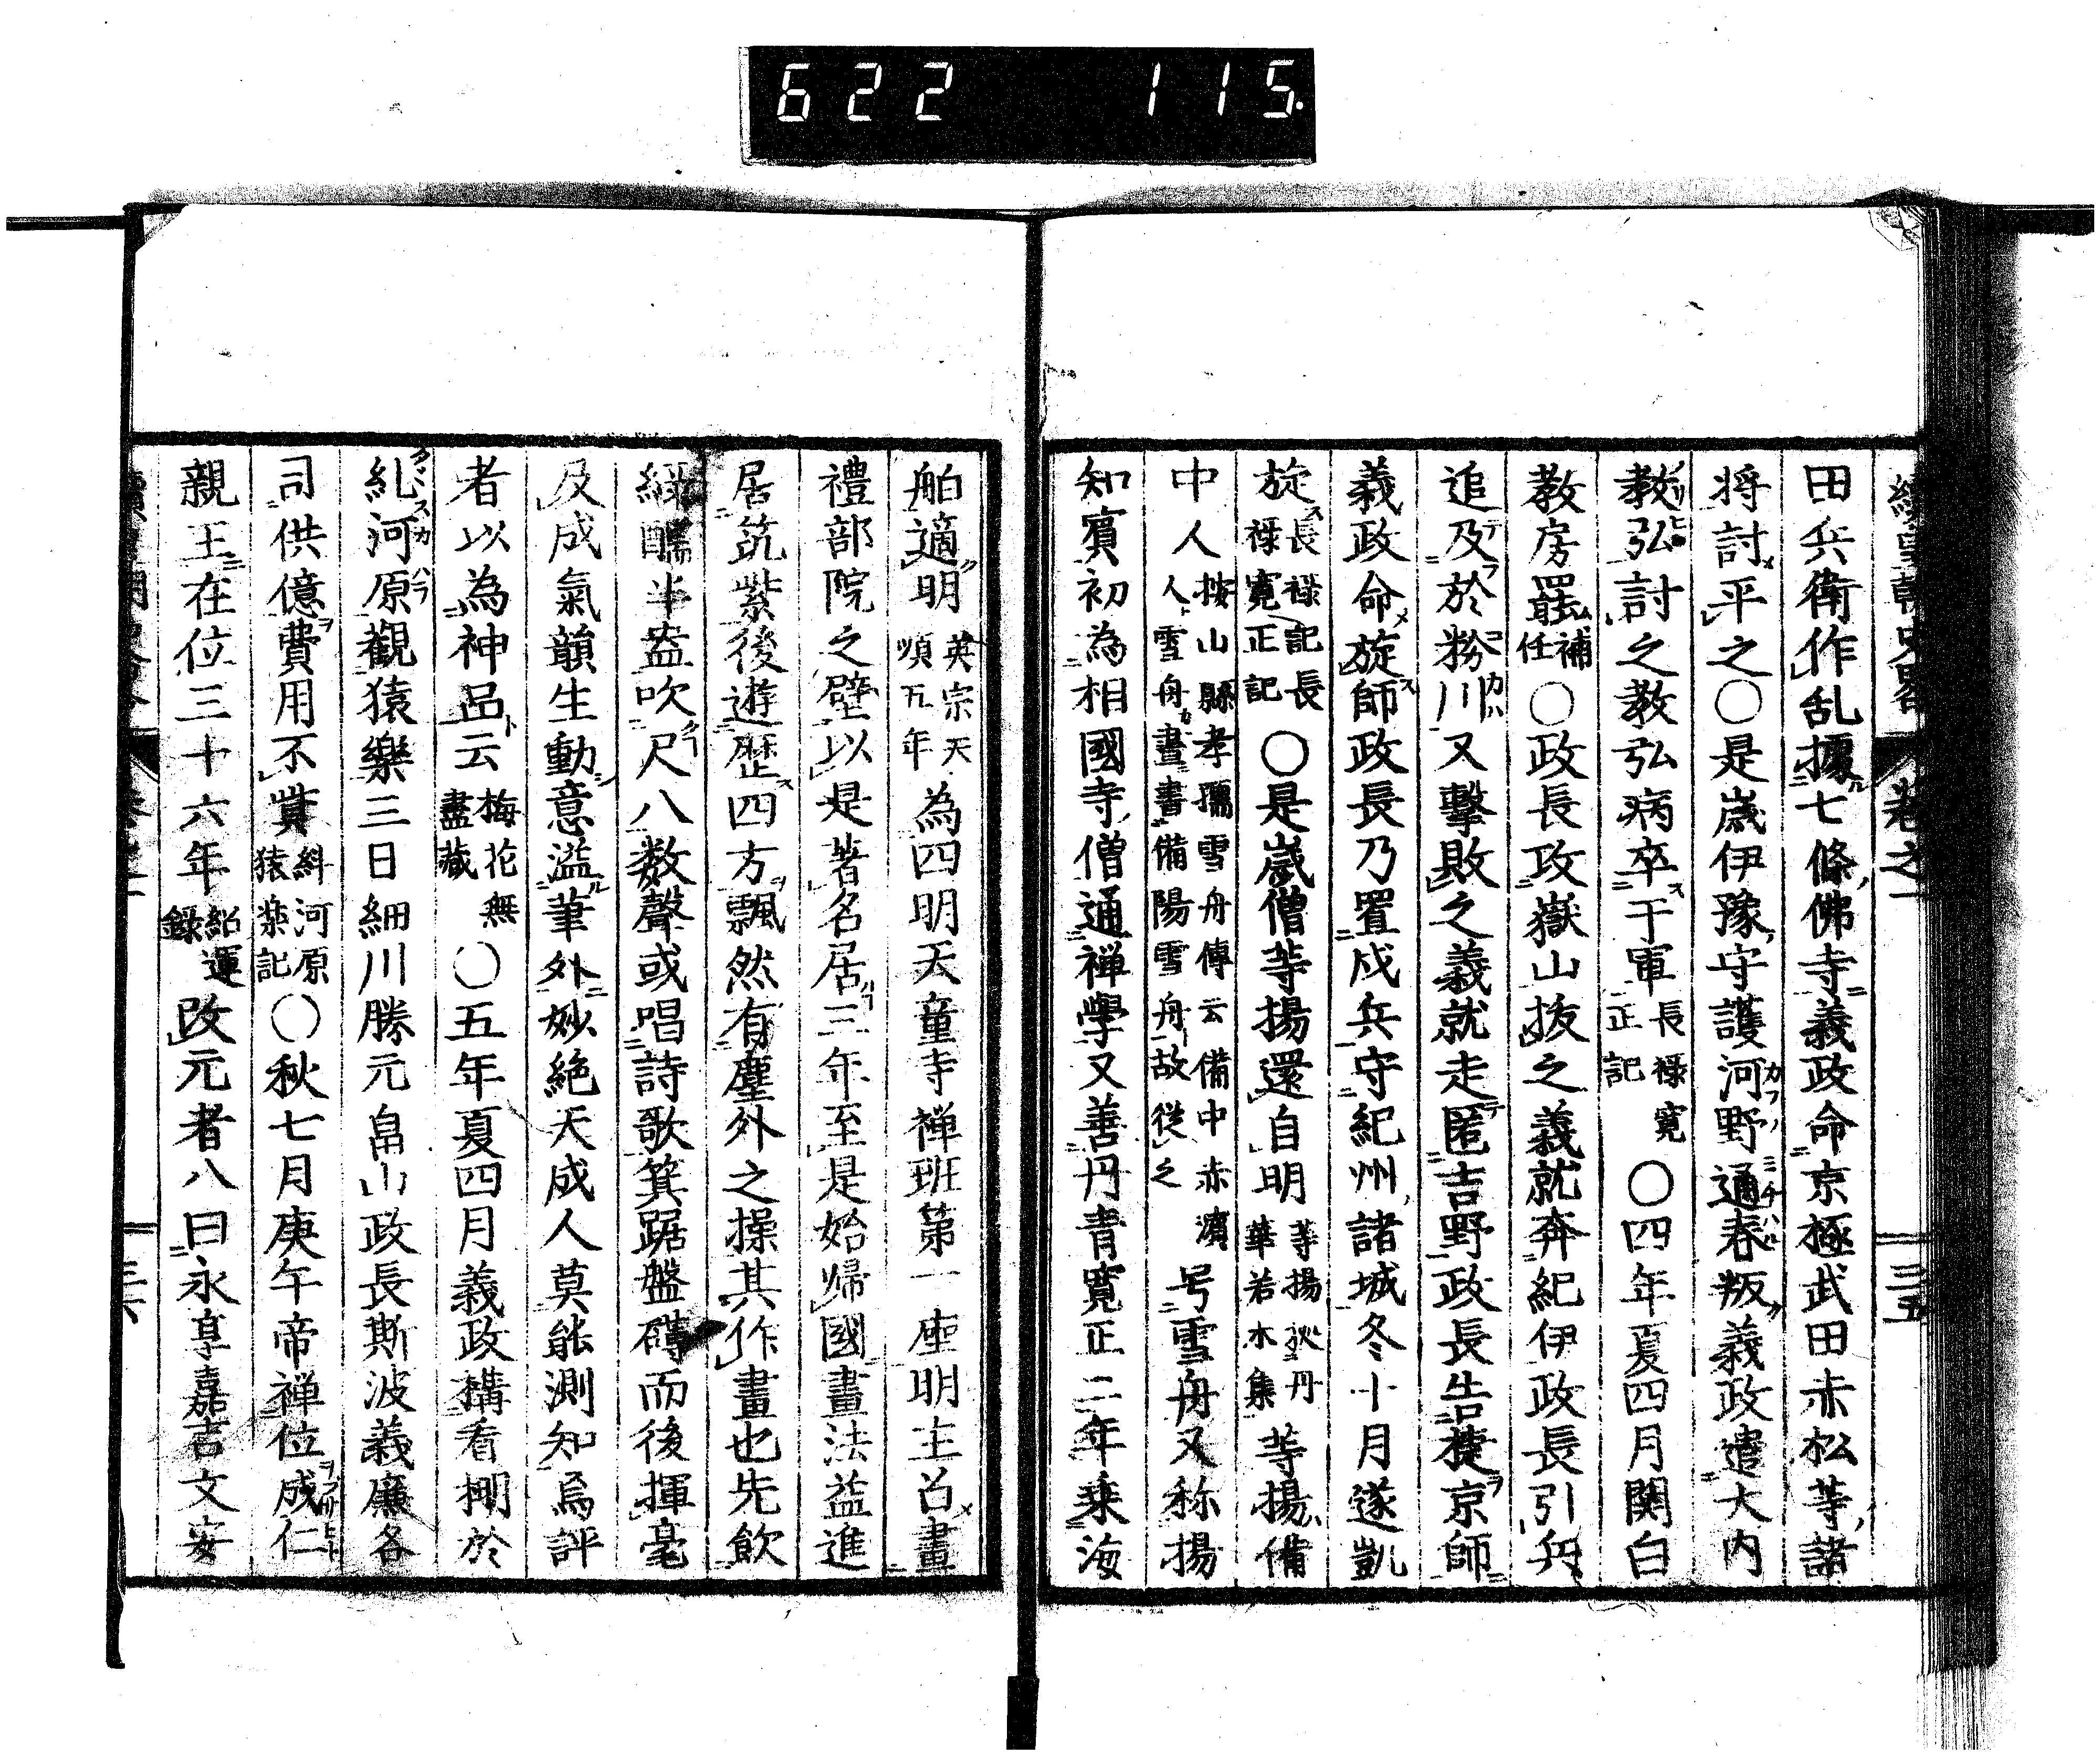 622 115.
續皇朝史略 卷之一 三五
田兵衛作乱據七條佛寺義政命京極武田赤松等諸
将討平之〇是歳伊豫守護河野通春叛義政遣大内
教弘討之教弘病卒于軍長禄寛正記〇四年夏四月関白
教房罷補任〇政長攻嶽山抜之義就奔紀伊政長引兵
追及於粉川又擊敗之義就走匿吉野政長告捷京師
義政命旋師政長乃置戍兵守紀州諸城冬十月遂凱
旋長禄記長禄寛正記〇是歳僧等揚還自明等揚狄丹華若木集等揚備
中人按山縣孝孺雪舟傳云備中赤濱人雪舟畫書備陽雪舟故従之号雪舟又称揚
知賓初為相國寺僧通禅學又善丹青寛正二年乗海
舶適明英宗天順五年為四明天童寺禅班第一座明主召畫
禮部院之壁以是著名居三年至是始帰國畫法益進
居筑紫後遊歴四方飄然有塵外之操其作畫也先飲
醁醽半盗吹尺八数聲或唱詩歌箕踞盤礴而後揮毫
及成氣韻生動意溢筆外妙絶天成人莫能測知焉評
者以為神品云梅花無盡藏〇五年夏四月義政搆看棚於
糺河原観猿樂三日細川勝元畠山政長斯波義廉各
司供億費用不貲糾河原猿楽記〇秋七月庚午帝禅位成仁
親王在位三十六年紹運録改元者八曰永享嘉吉文安